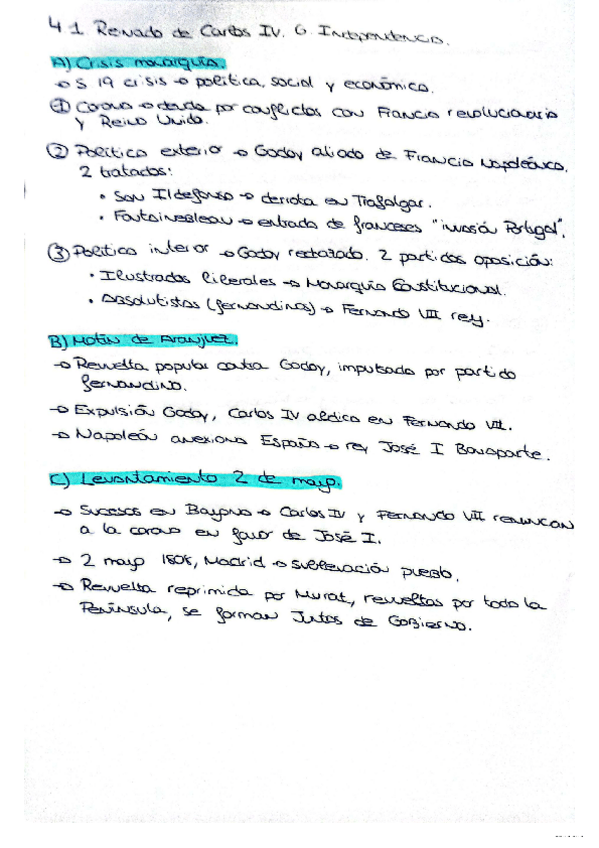 4.1. Reinado de Carlos IV. G. Independencia.
A) Crisis monarquía.
→ S 19 crisis → política, social y económica.
① Corona → deuda por conflictos con Francia revolucionaria
y Reino Unido.
② Política exterior → Godoy aliado de Francia Napoleónica.
2 tratados:
• San Ildefonso → derrota en Trafalgar.
• Fontainebleau → entrada de franceses "invasión Portugal".
③ Política interior → Godoy rechazado. 2 partidos oposición:
• Ilustrados liberales → Monarquía Constitucional.
• Absolutistas (fernandinos) → Fernando VII rey.
B) Motín de Aranjuez.
→ Revuelta popular contra Godoy, impulsada por partido
fernandino.
→ Expulsión Godoy, Carlos IV abdica en Fernando VII.
→ Napoleón anexiona España → rey José I Bonaparte.
C) Levantamiento 2 de mayo.
→ Sucesos en Bayona → Carlos IV y Fernando VII renuncian
a la corona en favor de José I.
→ 2 mayo 1808, Madrid → sublevación pueblo.
→ Revuelta reprimida por Murat, revueltas por toda la
Península, se forman Juntas de Gobierno.